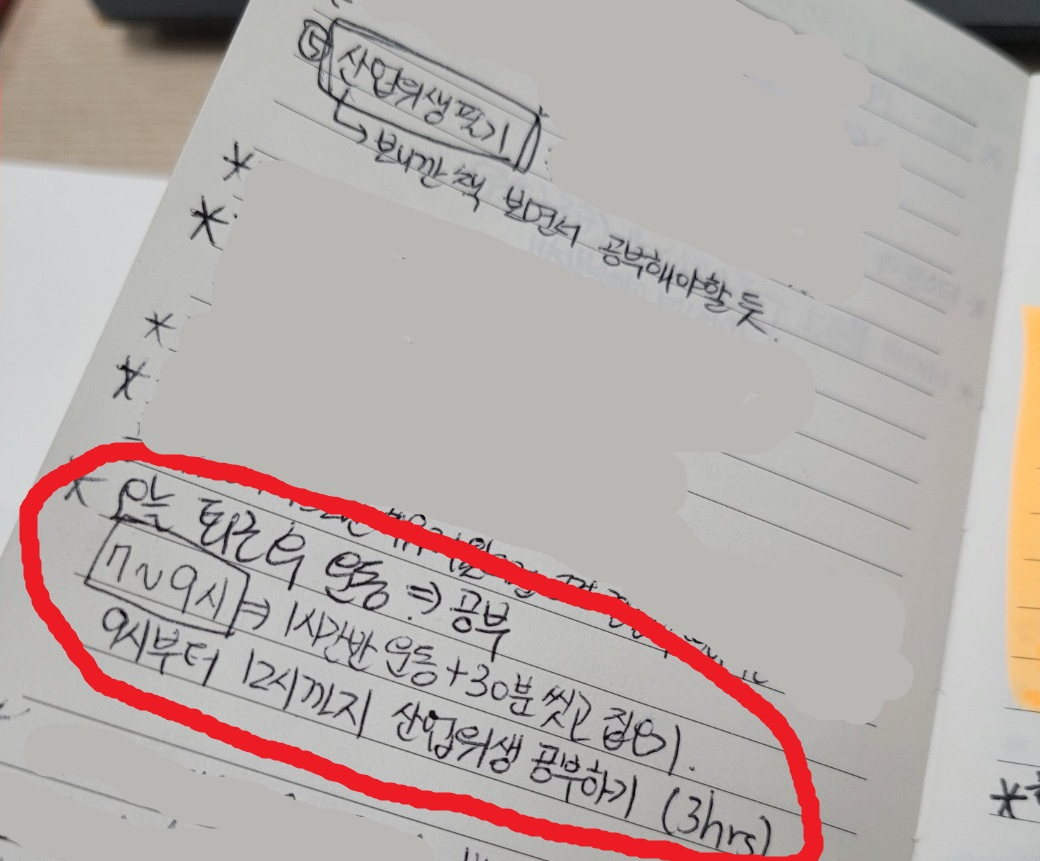 산업위생필기
→ 보니깐 책 보면서 공부해야할 듯.
*
*
*
*
* 오늘 퇴근후 운동 ⇒ 공부
7~9시 ⇒ 1시간반 운동 + 30분 씻고 집오기.
9시부터 12시까지 산업위생 공부하기 (3hrs)